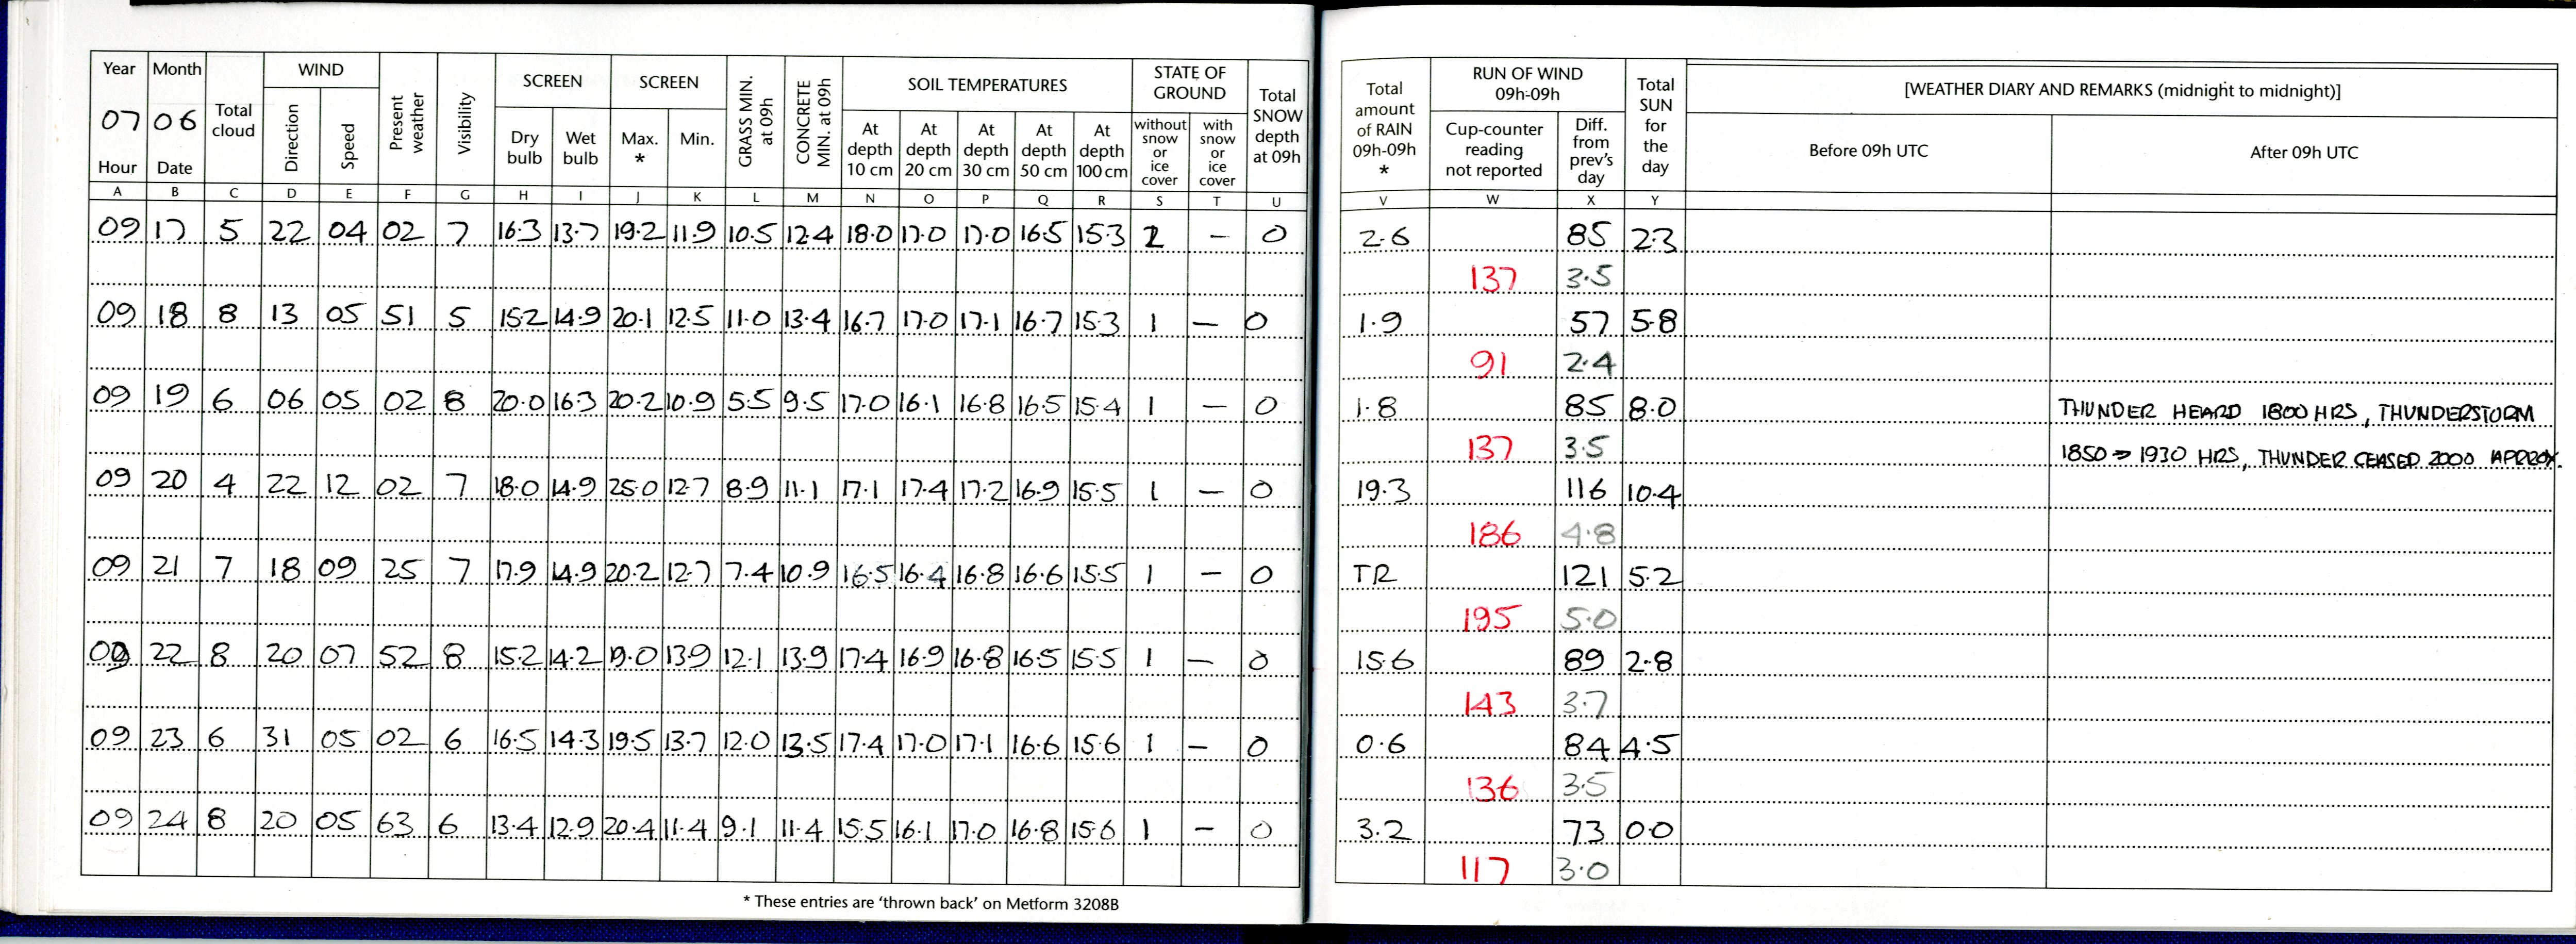 Year Month Total cloud WIND Present weather Visibility SCREEN SCREEN GRASS MIN. at 09h CONCRETE MIN. at 09h SOIL TEMPERATURES STATE OF GROUND Total SNOW depth at 09h Total amount of RAIN 09h-09h * RUN OF WIND 09h-09h Total SUN for the day [WEATHER DIARY AND REMARKS (midnight to midnight)]
07 06
Hour Date Direction Speed Dry bulb Wet bulb Max. * Min. At depth 10 cm At depth 20 cm At depth 30 cm At depth 50 cm At depth 100 cm without snow or ice cover with snow or ice cover * Cup-counter reading not reported Diff. from prev's day Before 09h UTC After 09h UTC
A B C D E F G H I J K L M N O P Q R S T U V W X Y
09 17 5 22 04 02 7 16.3 13.7 19.2 11.9 10.5 12.4 18.0 17.0 17.0 16.5 15.3 2 – 0 2.6 85 2.3
137 3.5
09 18 8 13 05 51 5 15.2 14.9 20.1 12.5 11.0 13.4 16.7 17.0 17.1 16.7 15.3 1 – 0 1.9 57 5.8
91 2.4
09 19 6 06 05 02 8 20.0 16.3 20.2 10.9 5.5 9.5 17.0 16.1 16.8 16.5 15.4 1 – 0 1.8 85 8.0 THUNDER HEARD 1800 HRS, THUNDERSTORM
137 3.5 1850 → 1930 HRS, THUNDER CEASED 2000 APPROX.
09 20 4 22 12 02 7 18.0 14.9 25.0 12.7 8.9 11.1 17.1 17.4 17.2 16.9 15.5 1 – 0 19.3 116 10.4
186 4.8
09 21 7 18 09 25 7 17.9 14.9 20.2 12.7 7.4 10.9 16.5 16.4 16.8 16.6 15.5 1 – 0 TR 121 5.2
195 5.0
09 22 8 20 07 52 8 15.2 14.2 19.0 13.9 12.1 13.9 17.4 16.9 16.8 16.5 15.5 1 – 0 15.6 89 2.8
143 3.7
09 23 6 31 05 02 6 16.5 14.3 19.5 13.7 12.0 13.5 17.4 17.0 17.1 16.6 15.6 1 – 0 0.6 84 4.5
136 3.5
09 24 8 20 05 63 6 13.4 12.9 20.4 11.4 9.1 11.4 15.5 16.1 17.0 16.8 15.6 1 – 0 3.2 73 0.0
117 3.0
* These entries are 'thrown back' on Metform 3208B